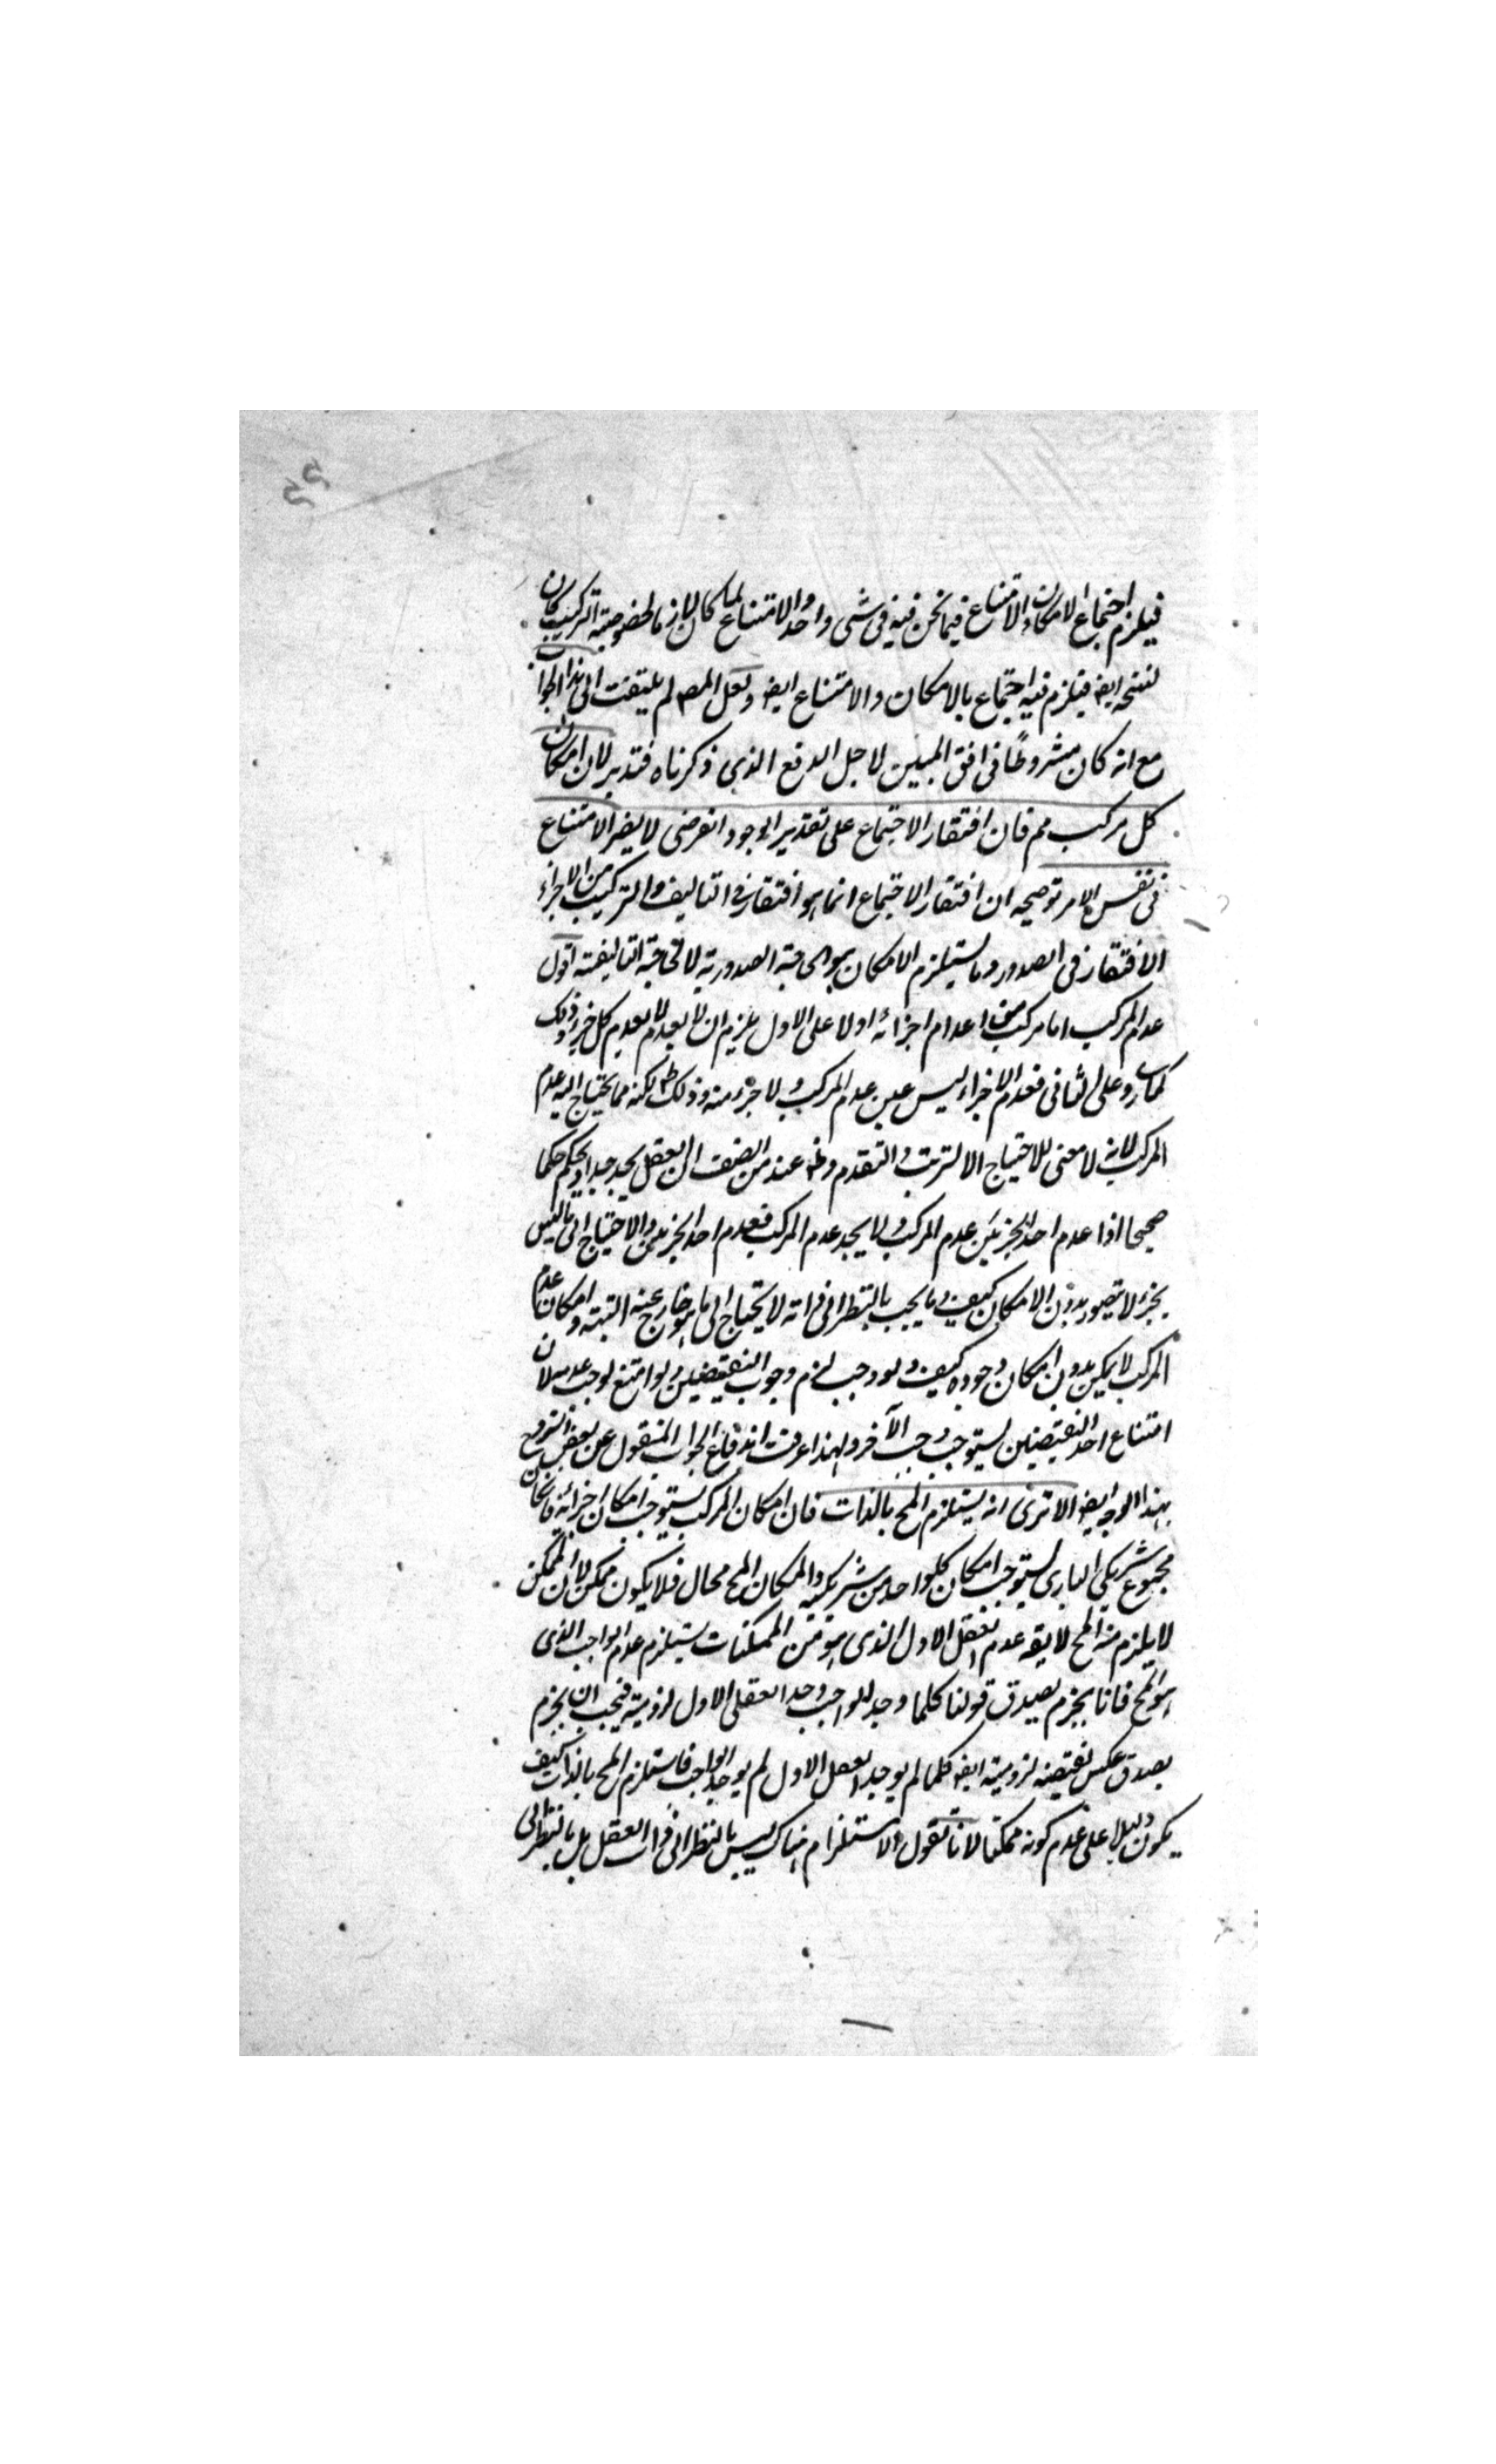 فيلزم اجتماع الامكان والامتناع فيما نحن فيه فى شى واحد والامتناع لما كان لازما لخصوصية التركيب كان
لنسخه ايضا فيلزم فيه اجتماع بالامكان والامتناع ايضا ولعل المصـ لم يلتفت الى هذا الجواب
مع انه كان مشروطا فى افق المبين لاجل الدفع الذى ذكرناه فتدبر لان امكان
كل مركب مم فان افتقار الاجتماع على تقدير الوجود الفرضى لا يضر الامتناع
فى نفس الامر توضيحه ان افتقار الاجتماع انما هو افتقار فى التاليف والتركيب من الاجزاء
الافتقار فى الصدور وما يستلزم الامكان هو الحاجة الصدورية لا الحاجة التاليفية اقول
عدم المركب اما مركب من اعدام اجزائه اولا على الاول يلزم ان لا يعدم الا بعدم كل جزء وذلك
كما ترى وعلى الثانى فعدم الاجزاء ليس عين عدم المركب ولا جزء منه وذلك ظ لكنه مما يحتاج اليه عدم
المركب لانه لا معنى للاحتياج الا الترتب والتقدم وظ عند من انصف ان العقل يجد جدا ويحكم حكما
صحيحا اذا عدم احد الجزئين عدم المركب ولا يجد عدم المركب فعدم احد الجزئين والاحتياج الى ما ليس
بجزء لا يتصور بدون الامكان كيف وما يجب بالنظر الى ذاته لا يحتاج الى ما هو خارج عنه البتة وامكان عدم
المركب لا يمكن بدون امكان وجوده كيف ولو وجب لزم وجوب النقيضين ولو امتنع لوجب عدمه لان
امتناع احد النقيضين يستوجب وجوب الآخر ولهذا عرفت اندفاع الجواب المنقول عن بعض الشروح
بهذا الوجه ايضا الا ترى انه يستلزم المح بالذات فان امكان المركب يستوجب امكان اجزائه فامكان
مجموع شريكى البارى يستوجب امكان كل واحد من شريكيه والمكان المح محال فلا يكون ممكنا لان الممكن
لا يلزم منه المح لا يقـ عدم العقل الاول الذى هو من الممكنات يستلزم عدم الواجب الذى
هو المح فانا نجزم بصدق قولنا كلما وجد الواجب وجد العقل الاول لزومية فيجب ان نجزم
بصدق عكس نقيضه لزومية ايضا كلما لم يوجد العقل الاول لم يوجد الواجب فاستلزم المح بالذات كيف
يكون دليلا على عدم كونه ممكنا لانا نقول الاستلزام هناك ليس بالنظر الى ذات العقل بل بالنظر الى